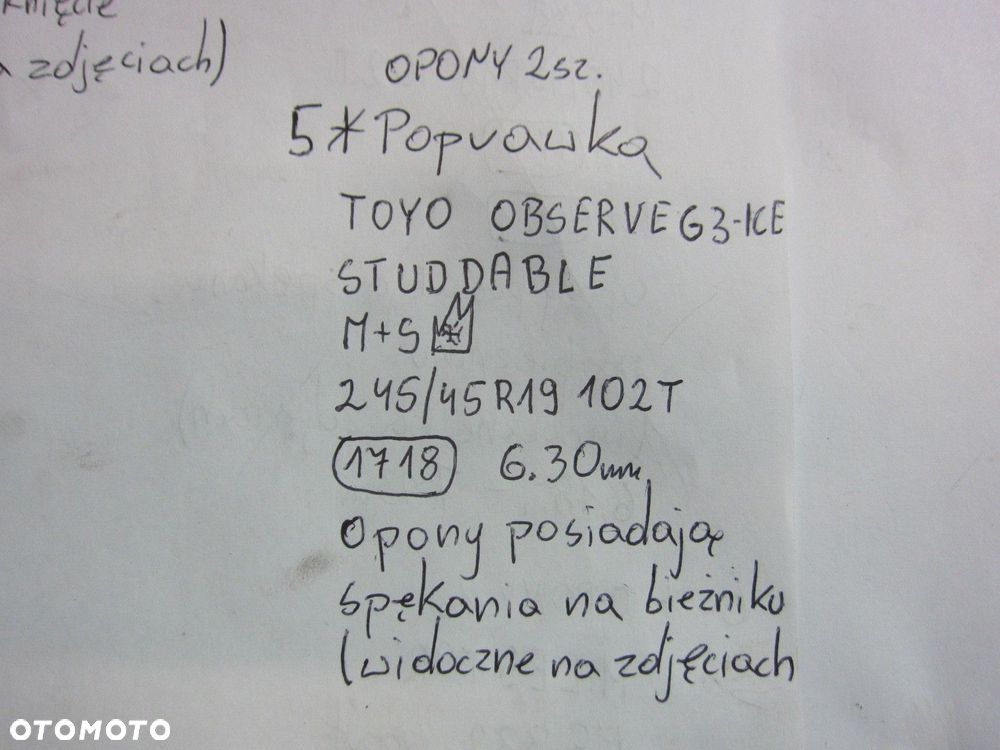 zdjęciach)
OPONY 2sz.
5*Poprawka
TOYO OBSERVE G3-ICE
STUDDABLE
M+S
245/45R19 102T
1718 6.30mm
Opony posiadają
spękania na bieżniku
(widoczne na zdjęciach
OTOMOTO